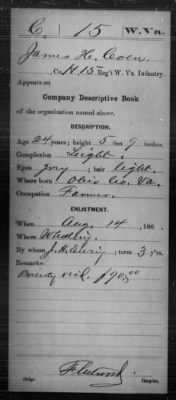 C. 15 W.Va.
James H. Coen
Co. H, 15 Reg't W. Va. Infantry.
Appears on
Company Descriptive Book
of the organization named above.
DESCRIPTION.
Age 24 years; height 5 feet 9 inches.
Complexion Light.
Eyes gray; hair light.
Where born Ohio Co. Va.
Occupation Farmer.
ENLISTMENT.
When Aug. 14, 186 .
Where
By whom J. H. ; term 3 y'rs.
Remarks:
Bounty $90.00
Copyist.